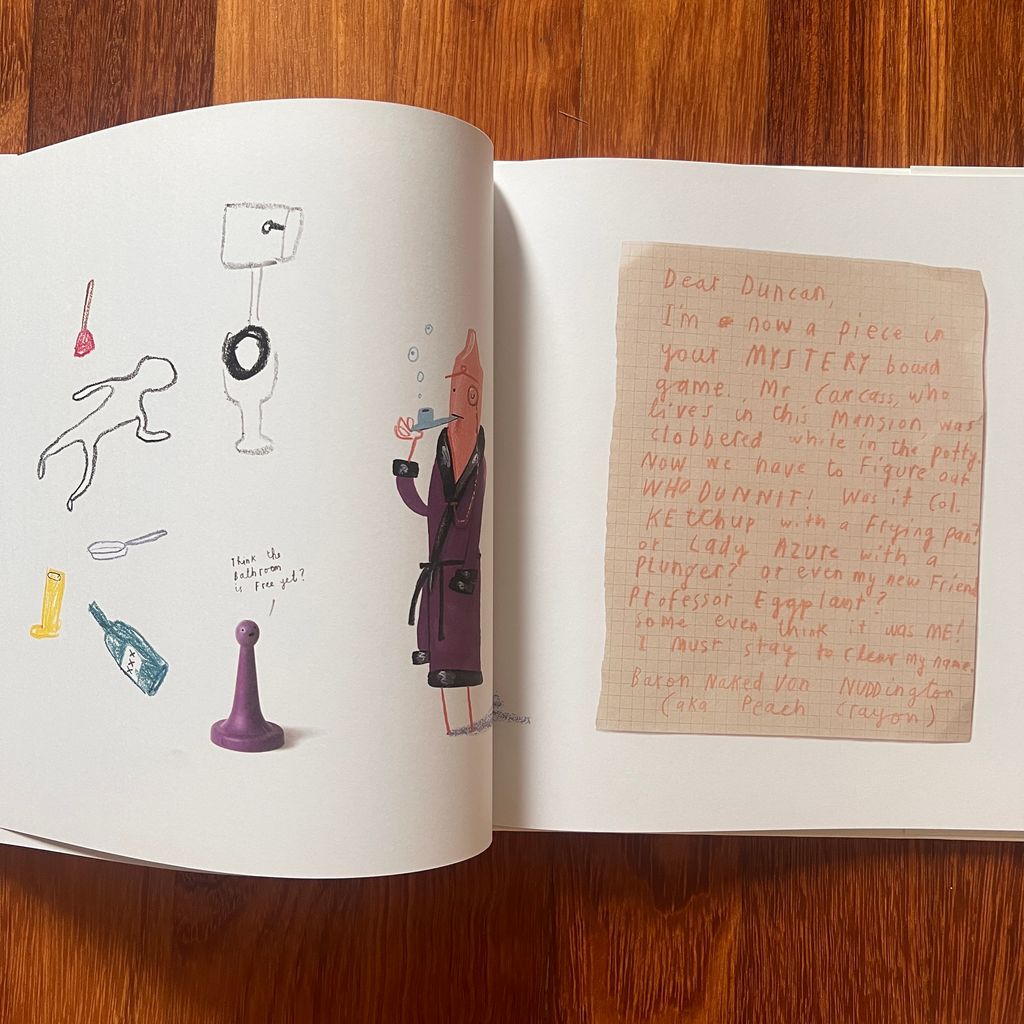 Think the
Bathroom
is Free yet?
XXX
Dear Duncan,
I'm now a piece in
your MYSTERY board
game. Mr Carcass, who
lives in this Mansion was
clobbered while in the potty.
Now we have to Figure out
WHO DUNNIT! Was it Col.
KETCHUP with a Frying pan?
or Lady Azure with a
Plunger? or even my new Friend
Professor Eggplant?
Some even think it was ME!
I must stay to clear my name.
Baron Naked Von NUDDington
(aka Peach Crayon)